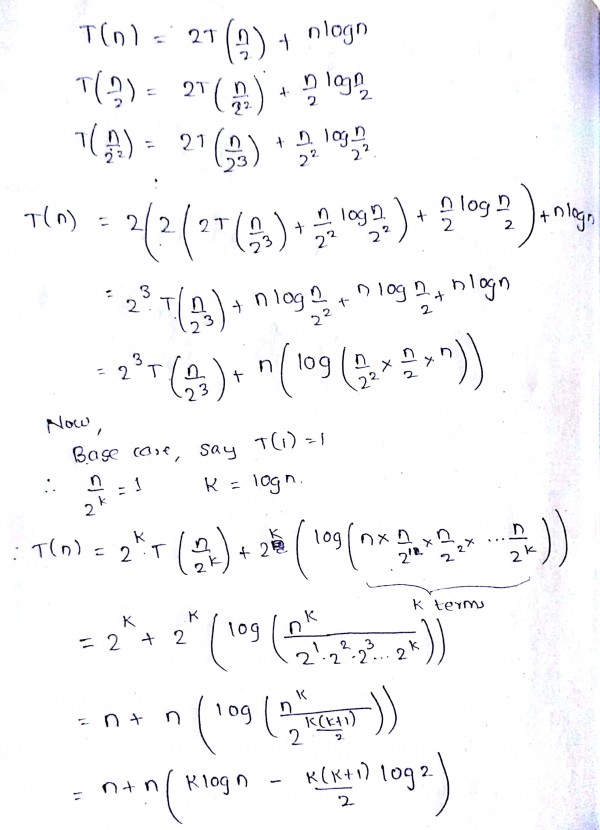 T(n) = 2T(n/2) + nlogn
T(n/2) = 2T(n/2²) + n/2 log n/2
T(n/2²) = 2T(n/2³) + n/2² log n/2²
T(n) = 2(2(2T(n/2³) + n/2² log n/2²) + n/2 log n/2) + nlogn
= 2³ T(n/2³) + n log n/2² + n log n/2 + nlogn
= 2³ T(n/2³) + n(log(n/2² × n/2 × n))
Now,
Base case, say T(1) = 1
∴ n/2^k = 1 K = logn.
∴ T(n) = 2^k T(n/2^k) + 2^k (log(n × n/2 × n/2² × ... n/2^k))
K terms
= 2^k + 2^k (log(n^k / 2¹·2²·2³...2^k))
= n + n (log(n^k / 2^(k(k+1)/2)))
= n + n (Klogn - k(k+1)/2 log 2)